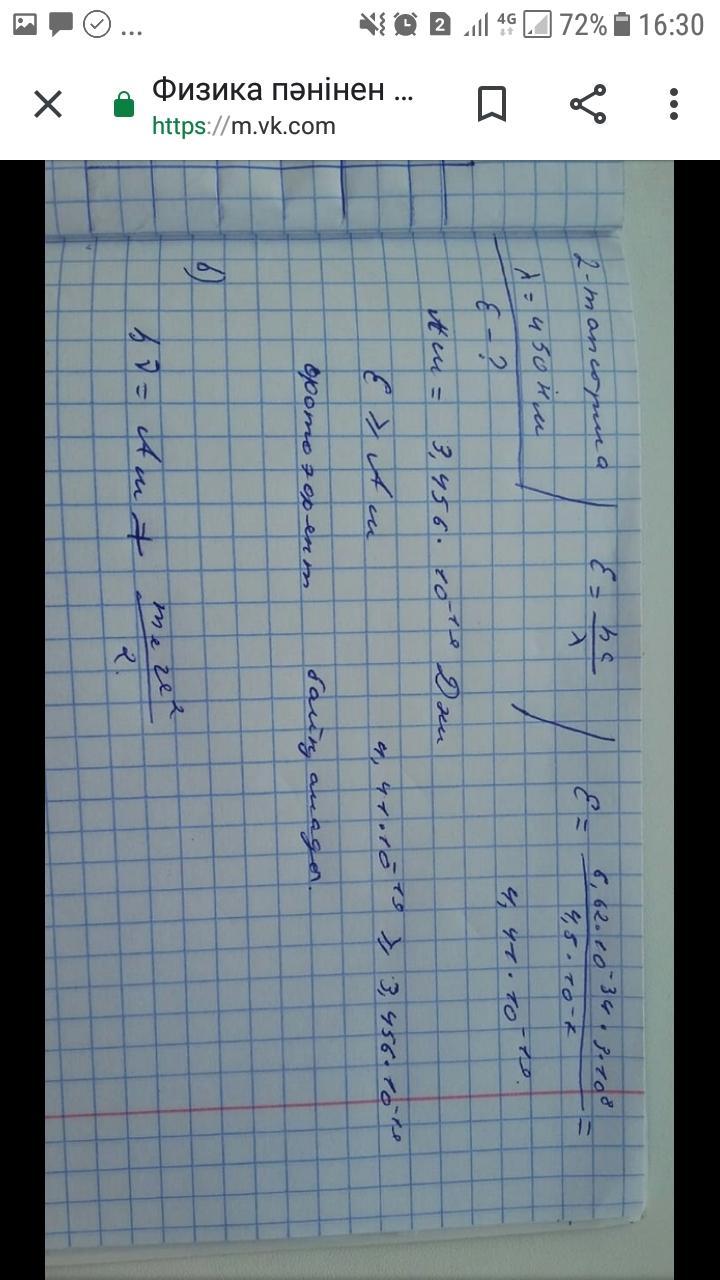 ... 2 4G 72% 16:30
Физика пәнінен ...
https://m.vk.com
2-тапсырма
λ = 450 нм
ε - ?
ε = hc / λ
ε = 6,62·10⁻³⁴·3·10⁸ / 4,5·10⁻⁷ =
4,41·10⁻¹⁹.
Aш = 3,456·10⁻¹⁹ Дж
ε ⩾ Aш 4,41·10⁻¹⁹ ⩾ 3,456·10⁻¹⁹
фотоэффект байқалады.
hν = Aш + mₑv² / 2.